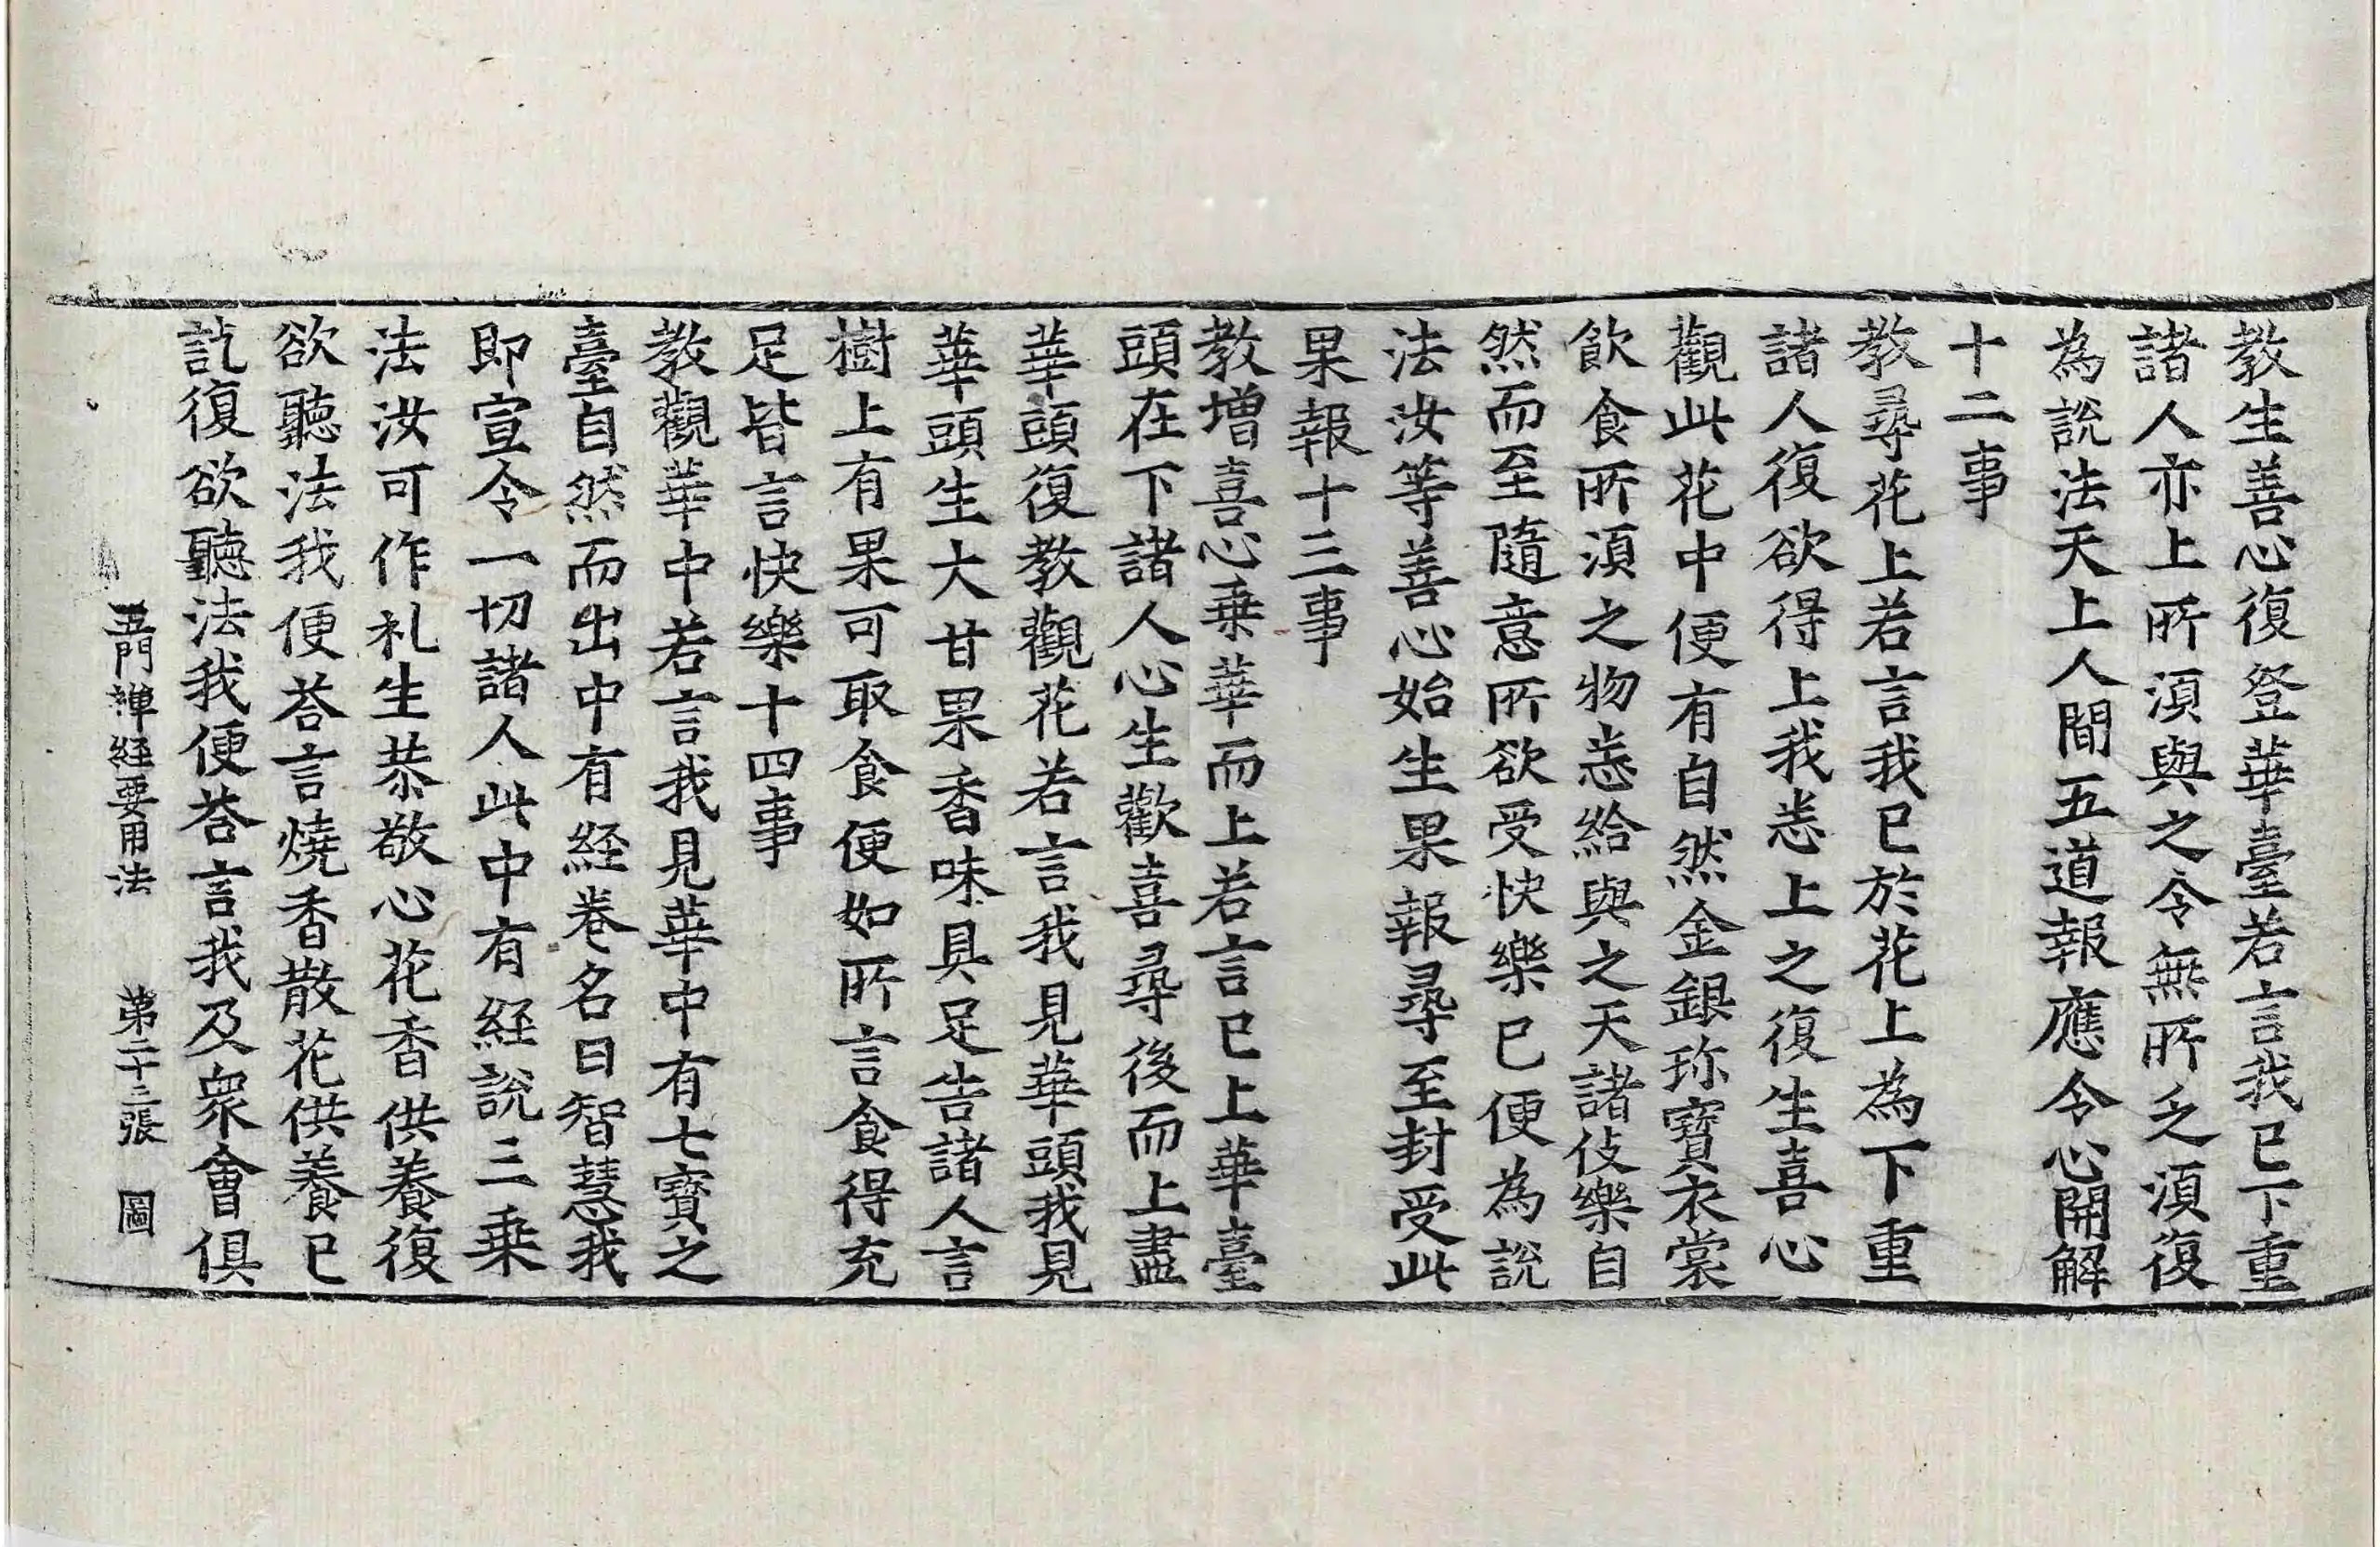 教生善心復登華臺若言我已下重
諸人亦上所湏與之令無所乏湏復
為說法天上人間五道報應令心開解
十二事
教尋花上若言我已於花上為下重
諸人復欲得上我悉上之復生喜心
觀此花中便有自然金銀珎寶衣裳
飲食所湏之物悉給與之天諸伎樂自
然而至隨意所欲受快樂已便為說
法汝等善心始生果報尋至封受此
果報十三事
教增喜心乗華而上若言已上華臺
頭在下諸人心生歡喜尋後而上盡
華頭復教觀花若言我見華頭我見
華頭生大甘果香味具足告諸人言
樹上有果可取食便如所言食得充
足皆言快樂十四事
教觀華中若言我見華中有七寶之
臺自然而出中有経卷名曰智慧我
即宣令一切諸人此中有経說三乗
法汝可作礼生恭敬心花香供養復
欲聽法我便荅言燒香散花供養已
訖復欲聽法我便荅言我及衆會俱
五門禪経要用法 第二十三張 圖